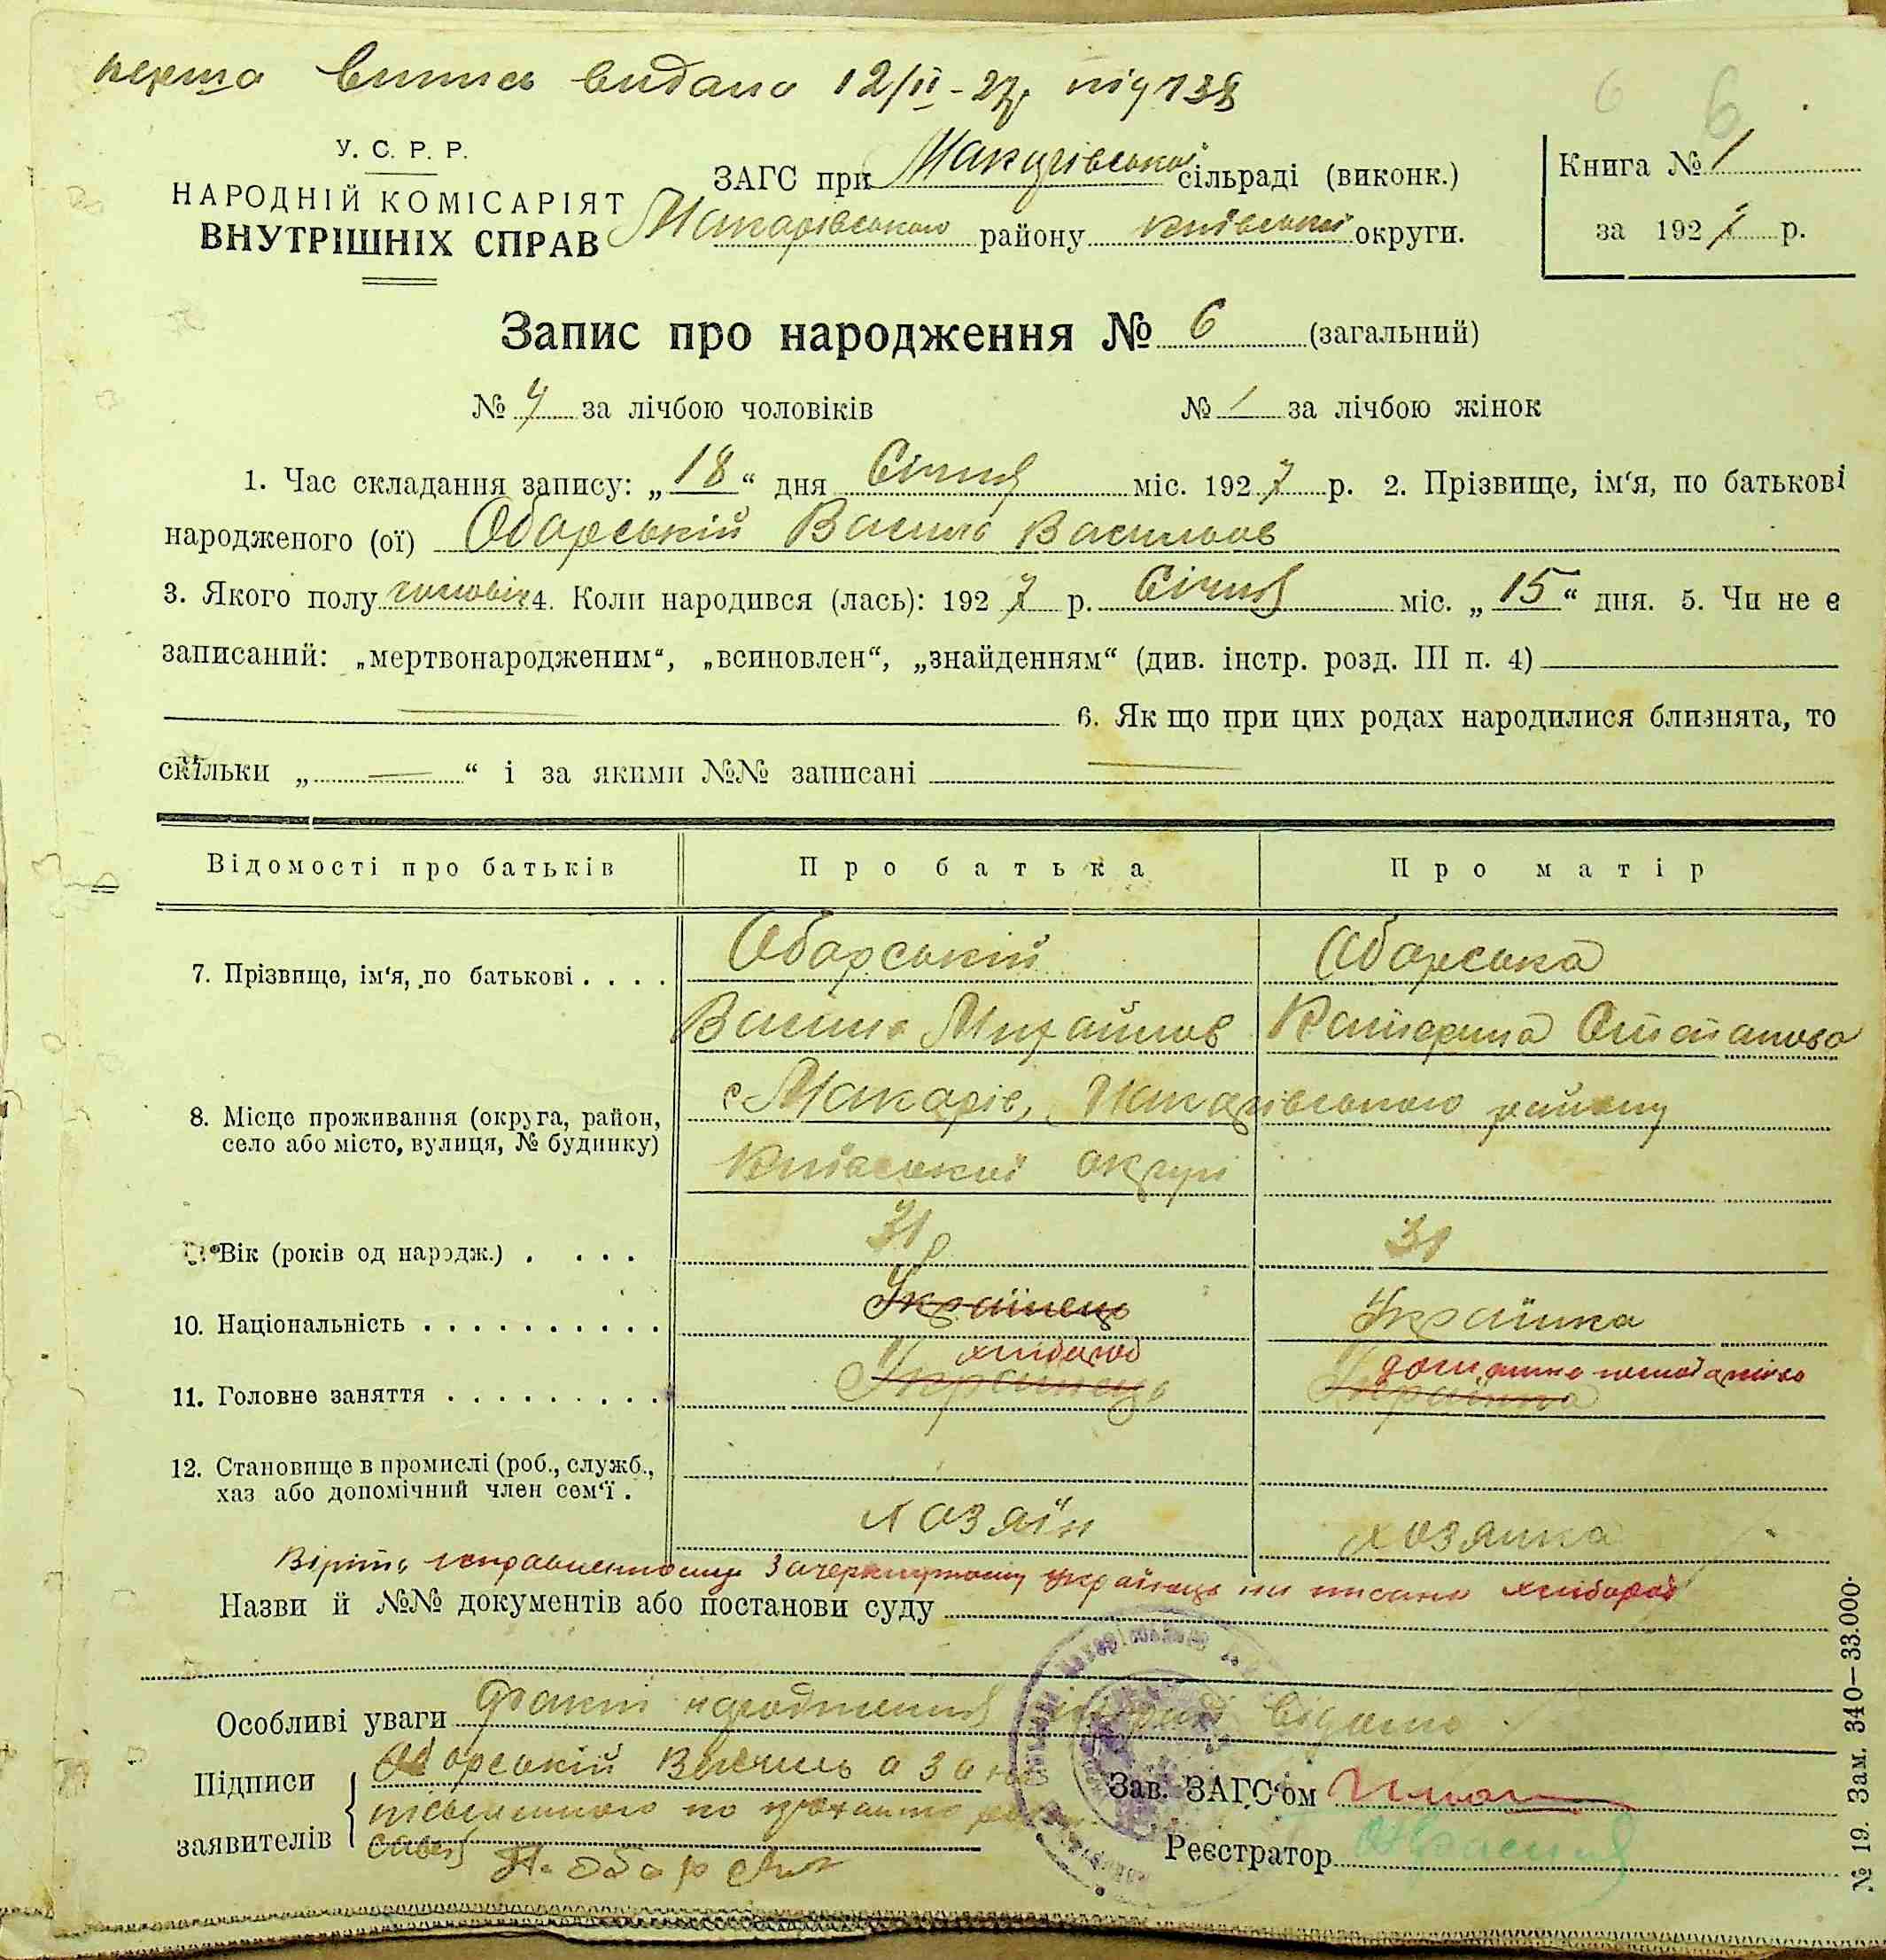 перша Випись видана 12/II-27р. під 138
У. С. Р. Р.
НАРОДНІЙ КОМІСАРІЯТ
ВНУТРІШНІХ СПРАВ
ЗАГС при Макарівської сільраді (виконк.)
Макарівського району Київської округи.
Книга № 1
за 1927 р.
6
Запис про народження № 6 (загальний)
№ 4 за лічбою чоловіків № 1 за лічбою жінок
1. Час складання запису: „18“ дня Січня міс. 1927 р. 2. Прізвище, ім‘я, по батькові
народженого (ої) Обарський Василь Васильов
3. Якого полу чоловіч 4. Коли народився (лась): 1927 р. Січня міс. „15“ дня. 5. Чи не є
записаний: „мертвонародженим“, „всиновлен“, „знайденням“ (див. інстр. розд. III п. 4)
6. Як що при цих родах народилися близнята, то
скільки „ “ і за якими №№ записані
Відомості про батьків Про батька Про матір
7. Прізвище, ім‘я, по батькові . . . . Обарський Обарська
Василь Михайлов Катерина Степанова
8. Місце проживання (округа, район,
село або місто, вулиця, № будинку)
с Макарів, Макарівського району
Київської округи
Вік (років од народж.) . . . . 31р 31
10. Національність . . . . . . . . . . Українець Українка
хлібороб домашнє
11. Головне заняття . . . . . . . . . Українець Українка
12. Становище в промислі (роб., служб.,
хаз або допомічний член сем‘ї .
хозяїн хозяйка
Вірить исправленному зачеркнутому українець написано хлібороб
Назви й №№ документів або постанови суду
Особливі уваги факт народження сільраді відомо
Підписи
заявителів
Обарський Василь а за
письменного по
Н. Обарски
Зав. ЗАГС‘ом
Реєстратор
№ 19. Зам. 340—33.000·